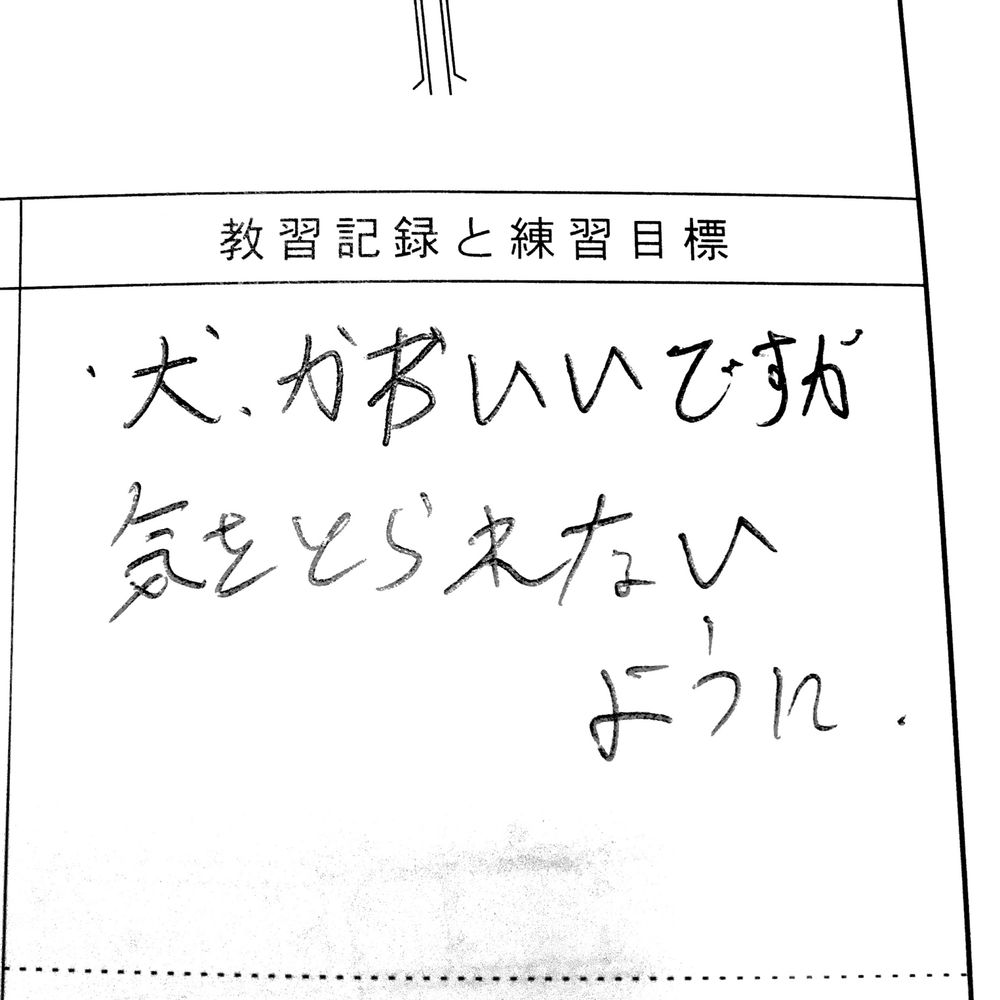 教習記録と練習目標
・犬、かわいいですが
気をとられない
ように.